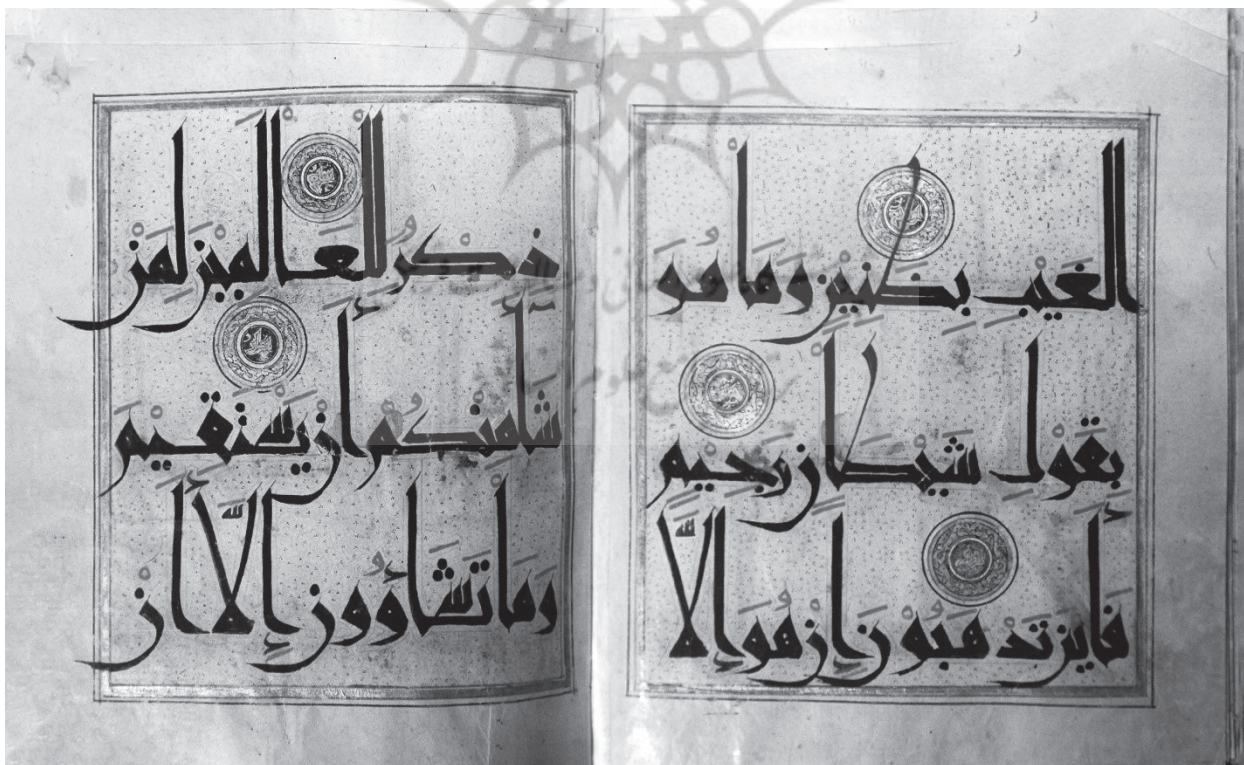 الْغَيْبِ بِضَنِينٍ وَمَا هُوَ
بِقَوْلِ شَيْطَانٍ رَجِيمٍ
فَأَيْنَ تَذْهَبُونَ إِنْ هُوَ إِلَّا
ذِكْرٌ لِلْعَالَمِينَ لِمَنْ
شَاءَ مِنْكُمْ أَنْ يَسْتَقِيمَ
وَمَا تَشَاؤُونَ إِلَّا أَنْ